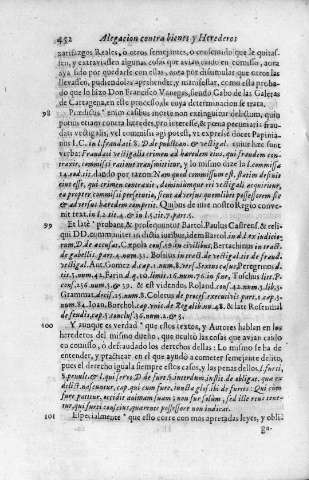 452 Alegacion contra bienes y Herederos
nazilzgos Reales, ò otros semejantes, ò consentido que le quitas-
sen, y extraviassen algunas cosas que avian caìdo en comisso, aora
aya sido por quedarse con ellas, aora por disimular que otros las
llevassen, pudiendolas aprehender, y manifestar, como està proba
do que lo hizo Don Francisco Vanegas, siendo Cabo de las Galeras
de Cartagena, en este processo, de cuya determinacion se trata.
98 Prædictus enim casibus morte non extinguitur delictum, quin
potius etiam contra heredes pro interesse, & poena pecuniaria frauda-
tis vectigalis, vel comissi agi potest, vt expresè docet Papinia-
nus I.C. in l. fraudati 8. D. de publican. & vectigal. cuius hæc sunt
verba: Fraudati vectigalis crimen ad heredem eius, qui fraudem con-
traxit, commissi ratione transmittitur, y lo mismo dize la l. commissa
14. eod. tit. dando por razon: Nam quod commissum est, statim desinit
eius esse, qui crimen contraxit, dominiumque rei vectigali acquiritur,
ea propter commissi persecutio, sicut adversus quemlibet possessorem sic
& adversus heredem competit. Quibus de iure nostro Regio conve-
nit text. in l. tit. 4. & in l. 5. tit. 7. part. 5.
99 Et latè probant, & prosequuntur Bartol. Paulus Castrens. & reli-
qui DD. communiter in dictis iuribus, idem Bartol. in d. l. ex iudicio-
rum, D. de accusat. Cæpola cons. 19. in civilibus, Bertachinus in tract.
de gabellis. part. 4. num. 25. Bosnius in tract. de vectigal. tit. de fraud.
vectigal. Ant. Gomez d. cap. 1. num. 8. vers. Sextus casus Peregrinus d.
tit. 1. num. 42. Farin. d. q. 10. limit. 16. num. 76. in fin. Tuschus liter. P.
conf. 256. num. 3. & 29. & est videndus Roland. cons. 42. num. 3. lib. 3.
Grammat. decis. 25. num. 8. Colerus de process. executivis part. 1. cap. 3.
num. 84. Ioan. Borchol. cap. vnic. de Regalib. nu. 48. & latè Rosenthal
de feudis, cap. 5. conclus. 36. num. 2. & 3.
100 Y aunque es verdad que estos textos, y Autores hablan en los
herederos del mismo dueño, que ocultò las cosas que avian caìdo
en comisso, ò defraudado los derechos dellas: Lo mismo se ha de
entender, y practicar en el que ayudò a cometer semejante delito,
pues el derecho iguala siempre estos casos, y las penas dellos, l. furti,
§. penult. & l. qui servo, D. de furt. §. interdum, instit. de obligat. quæ ex
delict. nascuntur, cap. qui cum fure, iuncta glos. ibi de furtis: Qui cum
fure partitur, occidit animam suam; non fur solùm, sed ille reus tene-
tur, qui furti conscius, quærente possessore non indicat.
101 Especialmente que esto corre con mas apretadas leyes, y obli
ga-